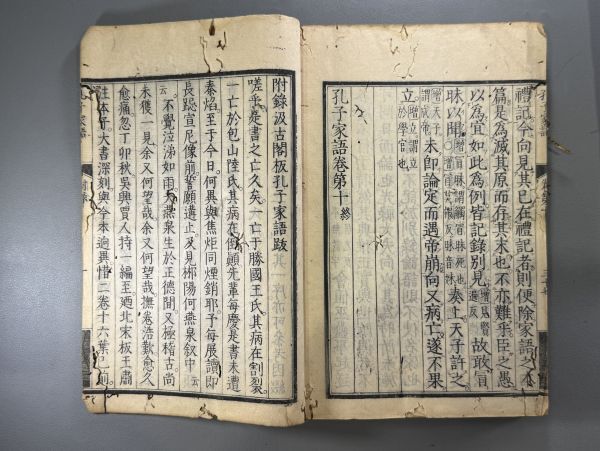 禮記今向見其已在禮記者則便除家語之本
篇是為滅其原而存其末也不亦難乎臣之愚
以為宜如此為例皆記錄別見故敢冒
昧以聞奏上天子許之
未即論定而遇帝崩向又病亡遂不果
立
孔子家語卷第十終
附錄汲古閣板孔子家語跋
嗟乎是書之亡久矣一亡于勝國王氏其病在割裂
一亡於包山陸氏其病在倒顛先輩每慶是書未遭
秦焰至于今日何異與焦炬同煙銷耶予每展讀即
長跽宣尼像前誓願遘止及見郴陽何燕泉叙中云
云不覺泣涕如雨夫燕泉生於正德間又極稽古尚
未獲一見余又何望哉余又何望哉撫卷浩歎愈久
愈痛忽丁卯秋吳興賈人持一編至迺北宋板王肅
註本子大書深刻與今本逈異惜二卷十六葉已前